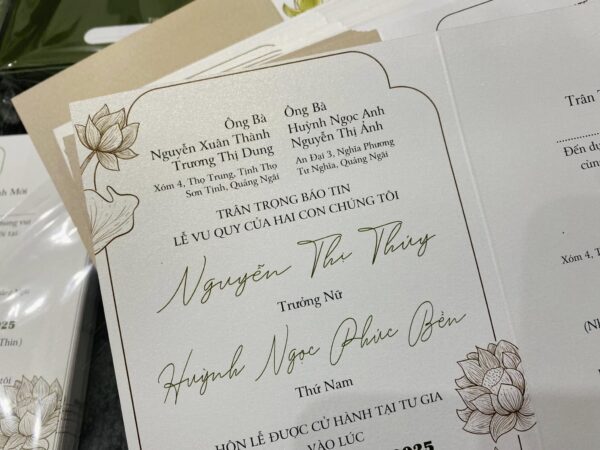 Ông Bà
Nguyễn Xuân Thành
Trương Thị Dung
Xóm 4, Thọ Trung, Tịnh Thọ
Sơn Tịnh, Quảng Ngãi
Ông Bà
Huỳnh Ngọc Anh
Nguyễn Thị Ánh
An Đại 3, Nghĩa Phương
Tư Nghĩa, Quảng Ngãi
TRÂN TRỌNG BÁO TIN
LỄ VU QUY CỦA HAI CON CHÚNG TÔI
Nguyễn Thu Thủy
Trưởng Nữ
Huỳnh Ngọc Phúc Bền
Thứ Nam
HÔN LỄ ĐƯỢC CỬ HÀNH TẠI TƯ GIA
VÀO LÚC
2025
Trân T
Đến dự
cùn
Xóm 4, T
(Nh
h Mời
chung vui
2025
Thìn)
tôi